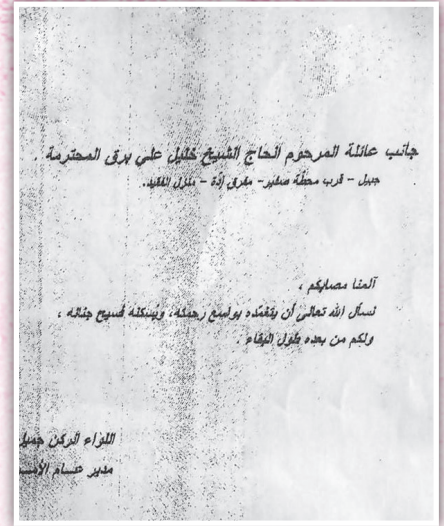 جانب عائلة المرحوم الحاج الشيخ خليل علي برق المحترمة .
جبيل – قرب محطّة صقير– مفرق إدّة – منزل الفقيد.
آلمنا مصابكم ،
نسأل الله تعالى أن يتغمّده بواسع رحمته، ويُسكنه فسيح جنانه ،
ولكم من بعده طول البقاء .
اللواء الركن جميل
مدير عــام الأمـ